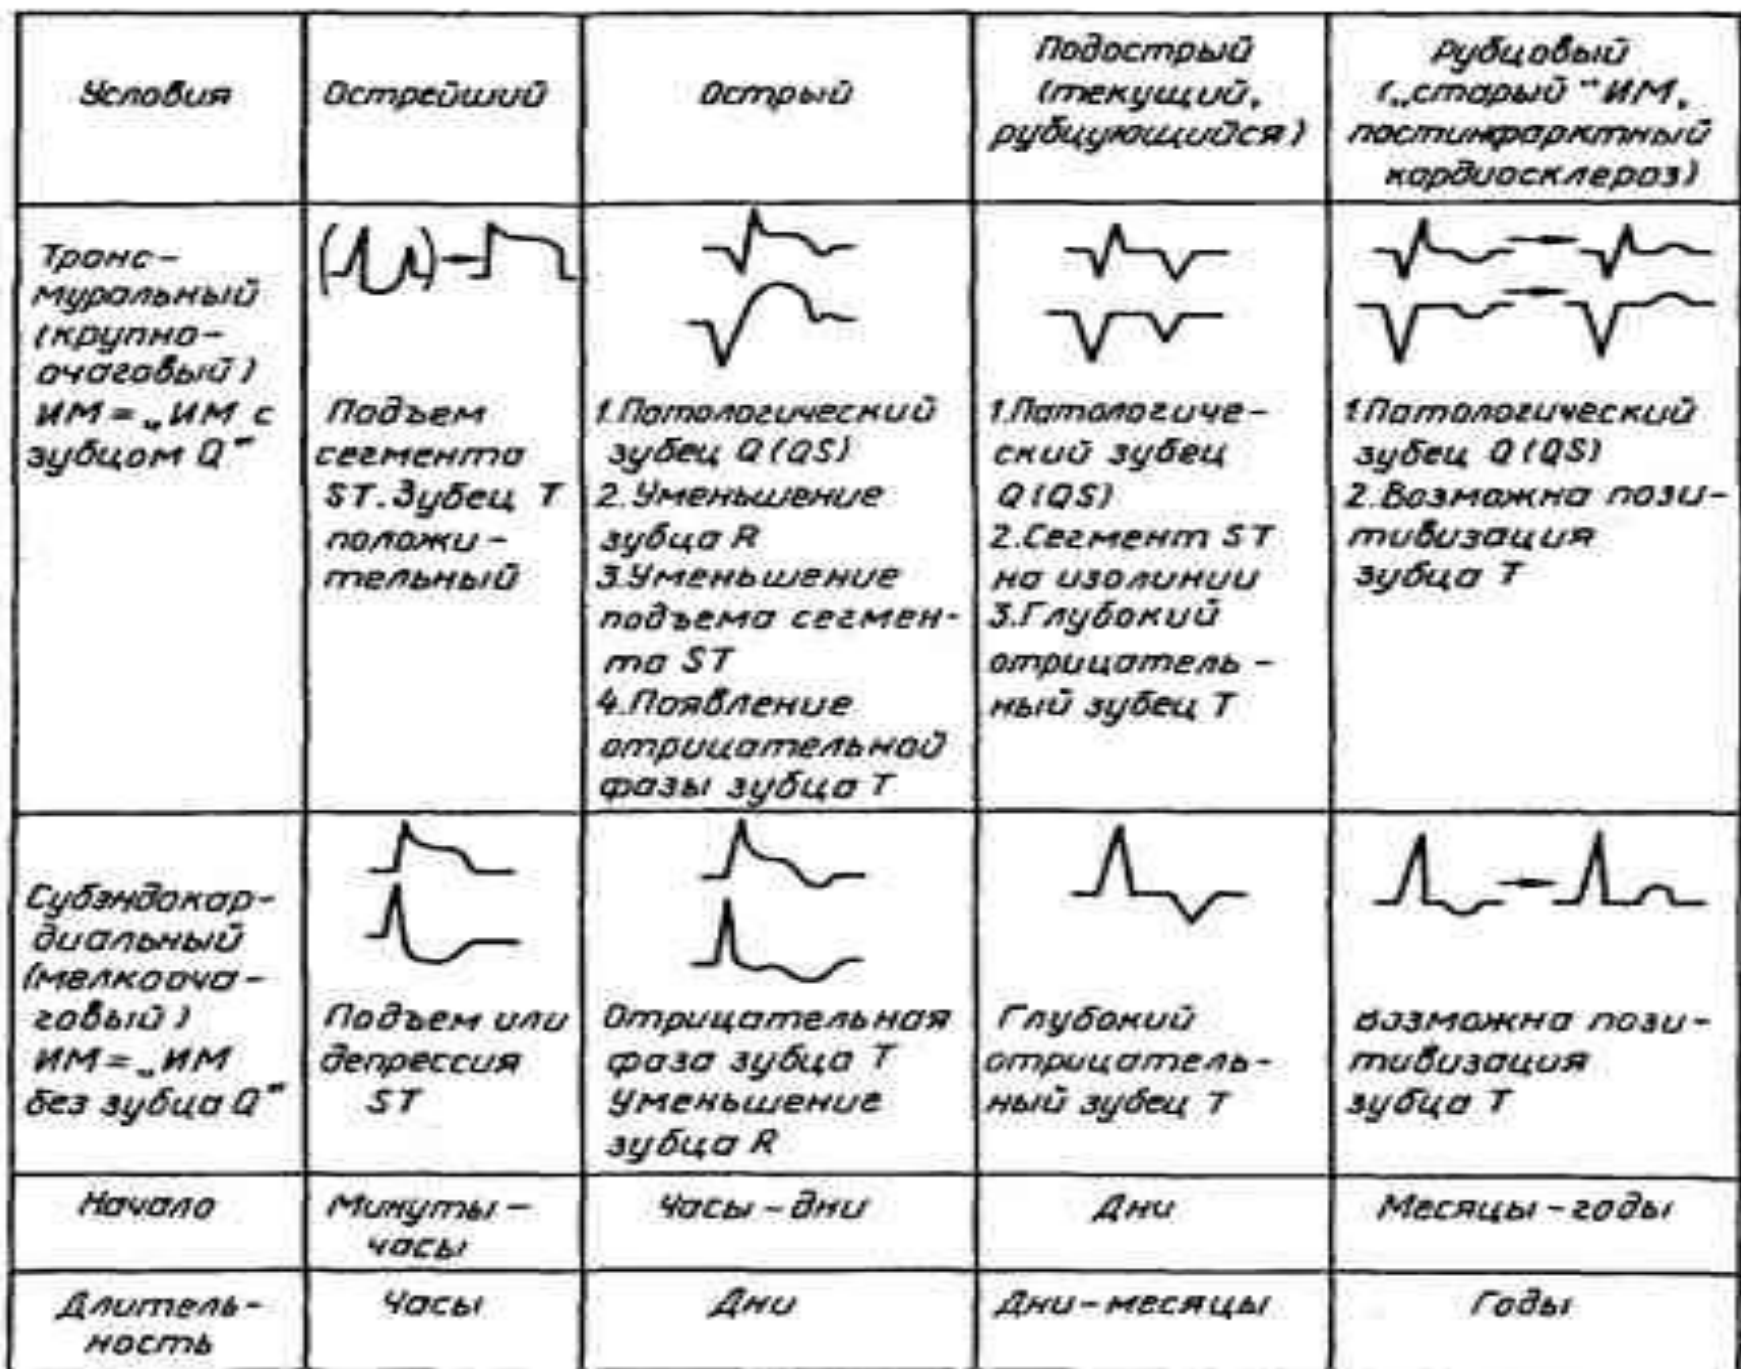 Условия
Острейший
Острый
Подострый
(текущий,
рубцующийся)
Рубцовый
(„старый" ИМ,
постинфарктный
кардиосклероз)
Транс-
муральный
(крупно-
очаговый)
ИМ = „ИМ с
зубцом Q"
Подъем
сегмента
ST. Зубец T
положи-
тельный
1. Патологический
зубец Q (QS)
2. Уменьшение
зубца R
3. Уменьшение
подъема сегмен-
та ST
4. Появление
отрицательной
фазы зубца T
1. Патологиче-
ский зубец
Q (QS)
2. Сегмент ST
на изолинии
3. Глубокий
отрицатель-
ный зубец T
1. Патологический
зубец Q (QS)
2. Возможна пози-
тивизация
зубца T
Субэндокар-
диальный
(мелкооча-
говый)
ИМ = „ИМ
без зубца Q"
Подъем или
депрессия
ST
Отрицательная
фаза зубца T
Уменьшение
зубца R
Глубокий
отрицатель-
ный зубец T
Возможна пози-
тивизация
зубца T
Начало
Минуты –
часы
Часы – дни
Дни
Месяцы – годы
Длитель-
ность
Часы
Дни
Дни – месяцы
Годы